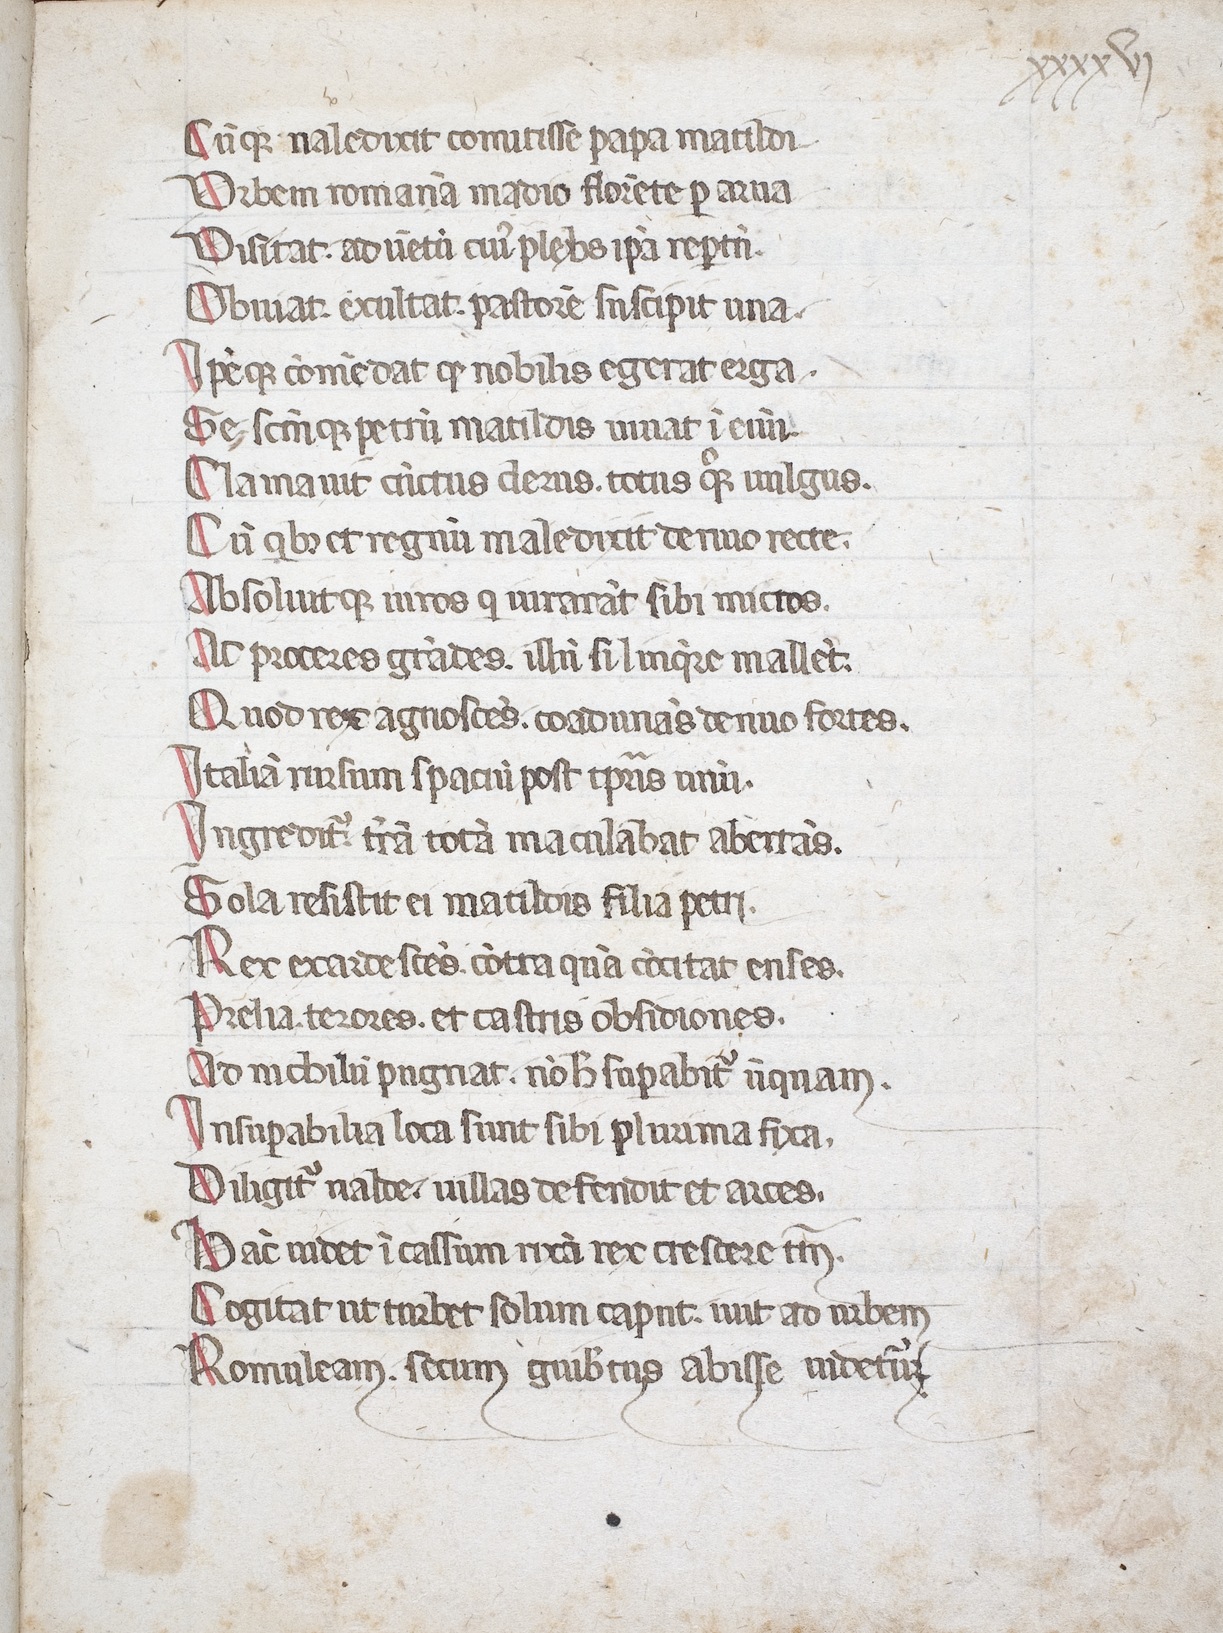 xxxxvi
Cūqꝫ ualedixit comitisse papa matildi
Vrbem romanā madio florēte ꝑ arua
Visitat. ad uētū cuiꝰ plebs ip̄a rep̄tū.
Obuiat. exultat. pastorē suscipit una.
Ip̄eqꝫ cōmēdat qꝫ nobilis egerat erga.
Se, scm̄qꝫ petrū matildis uiuat ī euū.
Clamauit cūctus clerus. totus qͦqꝫ uulgus.
Cū qbꝫ et regnū maledixit denuo recte.
Absoluitqꝫ uiros q iurarāt sibi uictos.
Ac proceres grādes. illū si linq̄re mallēt.
Quod rex agnoscēs. coadunās denuo fortes.
Italiā rursum spaciū post tp̄ris unū.
Ingreditᷣ. tr̄ā totā maculabat aberrās.
Sola resistit ei matildis filia petri.
Rex exardescēs. cōtra quā cōcitat enses.
Prelia. terores. et castris obsidiones.
Ad nichilū pugnat. nō h̄ suꝑabitᷣ ūquam.
Insuꝑabilia loca sunt sibi plurima fixa.
Diligitᷣ ualde. uillas defendit et arces.
Hāc uidet ī cassum rixā rex crescere tm̄.
Cogitat ut turbet solum caput. iuit ad urbem
Romuleam. secum guib̄tus abisse uidetūr